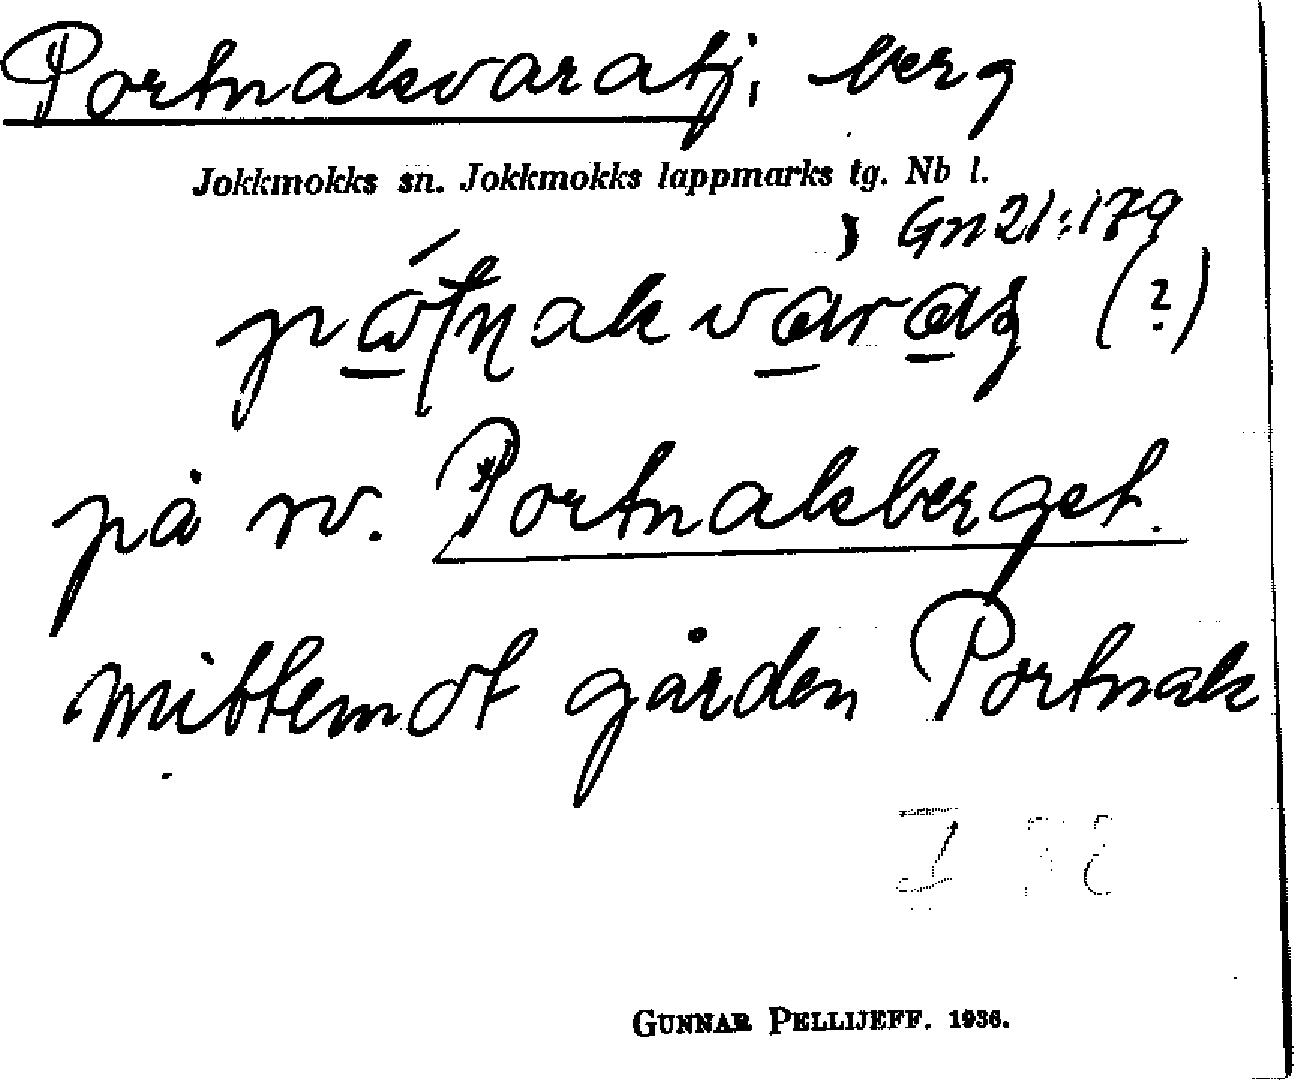 Portnakvaratj, berg
Jokkmokks sn. Jokkmokks lappmarks tg. Nb l.
, Gn 21:179
(?)
på sv. Portnakberget.
Mittemot gården Portnak
GUNNAR PELLIJEFF. 1936.